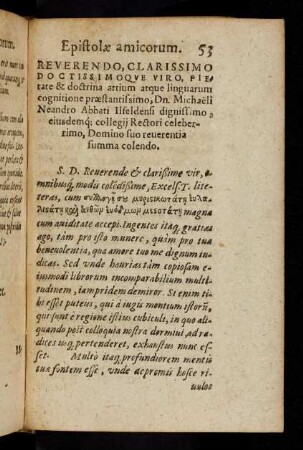 Epistolæ amicorum. 53
REVERENDO, CLARISSIMO
DOCTISSIMOQVE VIRO, PIE-
tate & doctrina artium atque linguarum
cognitione præstantissimo, Dn. Michaëli
Neandro Abbati Ilfeldensi dignissimo,
eiusdemq; collegij Rectori celeber-
rimo, Domino suo reuerentia
summa colendo.
S. D. Reuerende & clarissime vir,
omnibusq; modis colēdissime, Excels. T. lite-
teras, cum
magna
cum auiditate accepi. Ingentes itaq; gratias
ago, tàm pro isto munere, quàm pro tua
beneuolentia, qua amore tuo me dignum iu-
dicas. Sed vnde haurias tàm copiosam e-
iusmodi librorum incomparabilium multi-
tudinem, iampridem demiror. Si enim ti-
bi esset puteus, qui à iugis montium istorū,
qui sunt è regione istius cubiculi, in quo ali-
quando post colloquia nostra dormiui, ad ra-
dices usq; pertenderet, exhaustus nunc es-
set.
Multò itaq; profundiorem mentis
tuæ fontem esse, vnde depromis hosce ri-
uulos